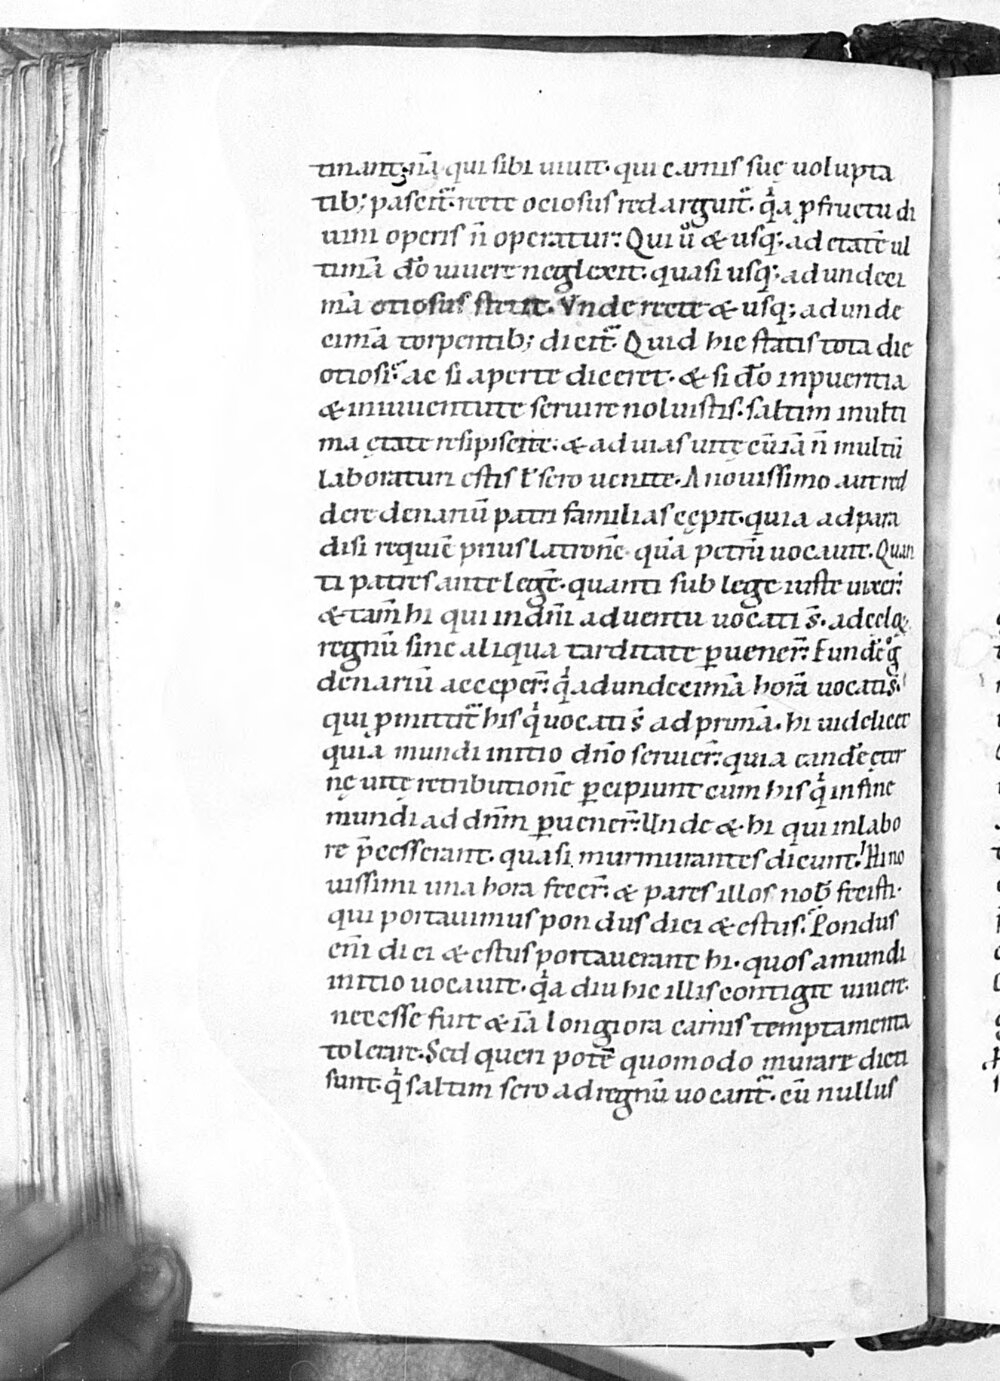 tinant; nā qui sibi uiuit· qui carnis suę uolupta
tib; pascit᷑· recte ociosus redarguit᷑· qͥa ꝑ fructū di
uini operis n̄ operatur: Qui uͦ & usq; ad etatē ul
timā dō uiuere neglexit· quasi usq; ad undeci
mā otiosus stetit· Vnde recte & usq; ad unde
cimā torpentib; dicit᷑· Quid hic statis tota die
otiosi: ac si aperte diceret· & si dō in pueritia
& in iuuentute seruire noluistis· saltim in ulti
ma ętate resipiscite· & ad uias uitę cū iā n̄ multū
laboraturi estis ł sero uenite· A nouissimo aut red
dere denariū pater familias cępit· quia ad para
disi requiē prius latronē quā petrū uocauit· Quan
ti patres ante legē· quanti sub lege iuste uixer̄
& tam̄ hi qui in dn̄i aduentu uocati s̄· ad celoꝝ
regnū sine aliqua tarditate ꝑuener̄: Eundē gͦ
denariū acceper̄· qͥ ad undecimā horā uocati s̄·
qui p̄mittit᷑ his qͥ uocati s̄ ad primā· hi uidelicet
quia mundi initio dn̄o seruier̄: quia eandē ęter
nę uitę retributionē ꝑcipiunt cum his qͥ in fine
mundi ad dn̄m ꝑuener̄: Unde & hi qui in labo
re p̄cesserant· quasi murmurantes dicunt! Hi no
uissimi una hora fecer̄· & pares illos nob̄ fecisti·
qui portauimus pondus diei & estus: Pondus
eni diei & estus portauerant hi· quos a mundi
initio uocauit· qͥa diu hic illis contigit uiuere·
necesse fuit & iā longiora carnis temptamenta
tolerare· Sed queri potē quomodo murare dicti
sunt· qͥ saltim sero ad regnū uocant᷑· cū nullus